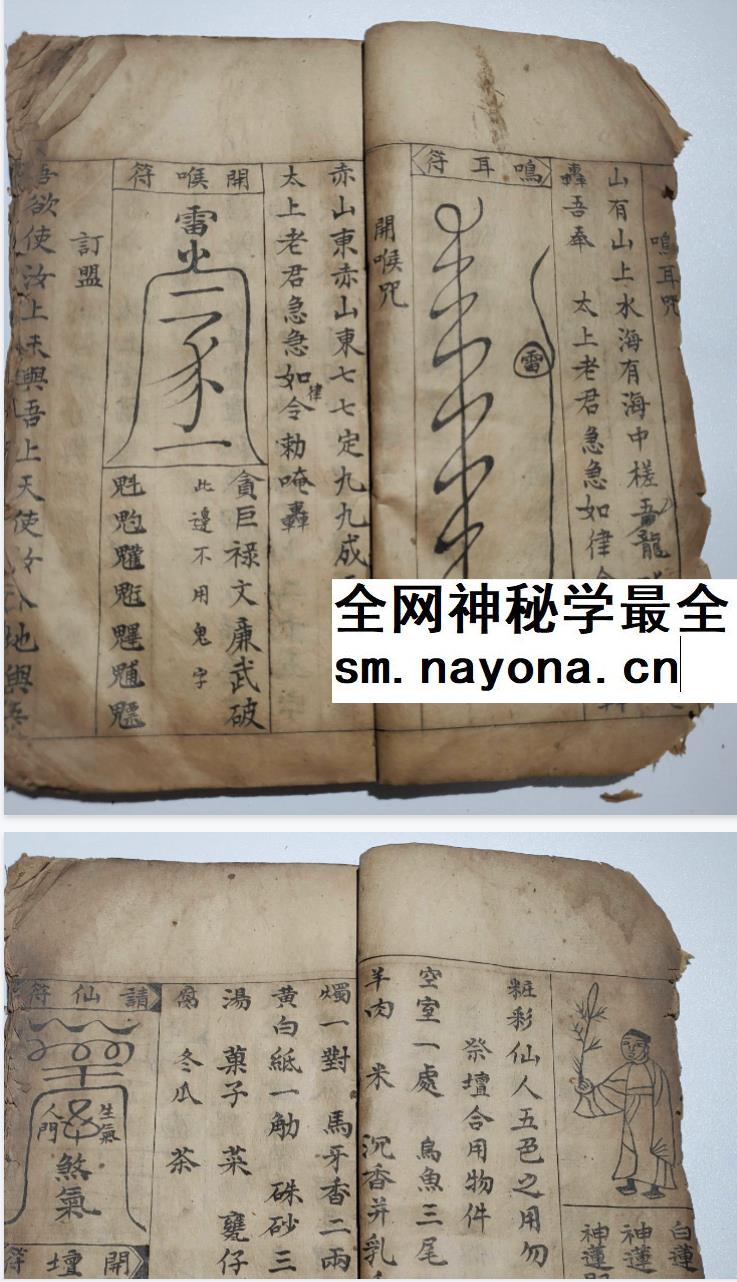 鳴耳咒
山有山上水海有海中槎吾龍
轟吾奉 太上老君急急如律令
鳴耳符
雷
開喉咒
赤山東赤山東七七定九九成
太上老君急急如律令勅唵轟
開喉符
雷火
貪巨禄文廉武破
此邊不用鬼字
魁䰢魓
訂盟
吾欲使汝上天與吾上天使令入地與吾
全网神秘学最全
sm.nayona.cn
白蓮
神蓮
神蓮
粧彩仙人五色之用勿
祭壇合用物件
空室一處 烏魚三尾
羊肉 米 沉香并乳
燭一對 馬牙香二兩
黄白紙一觔 硃砂三
湯 菓子 菜 甕仔
冬瓜 茶
請仙符
生氣
人門
煞氣
開壇符